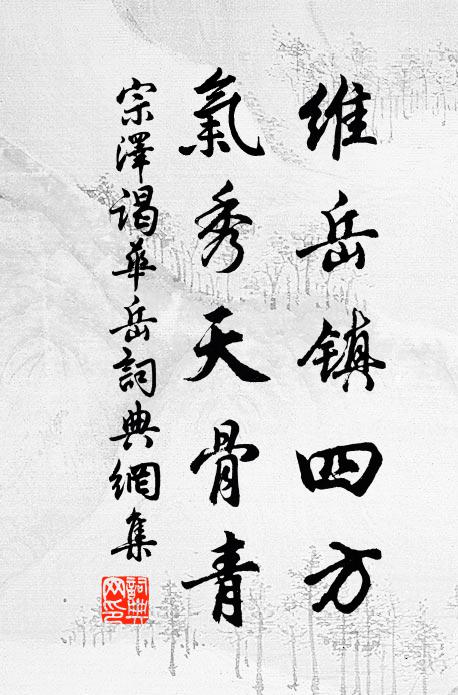 維岳鎮四方
氣秀天骨青
宗澤謁華岳詞典網集
詞典網印